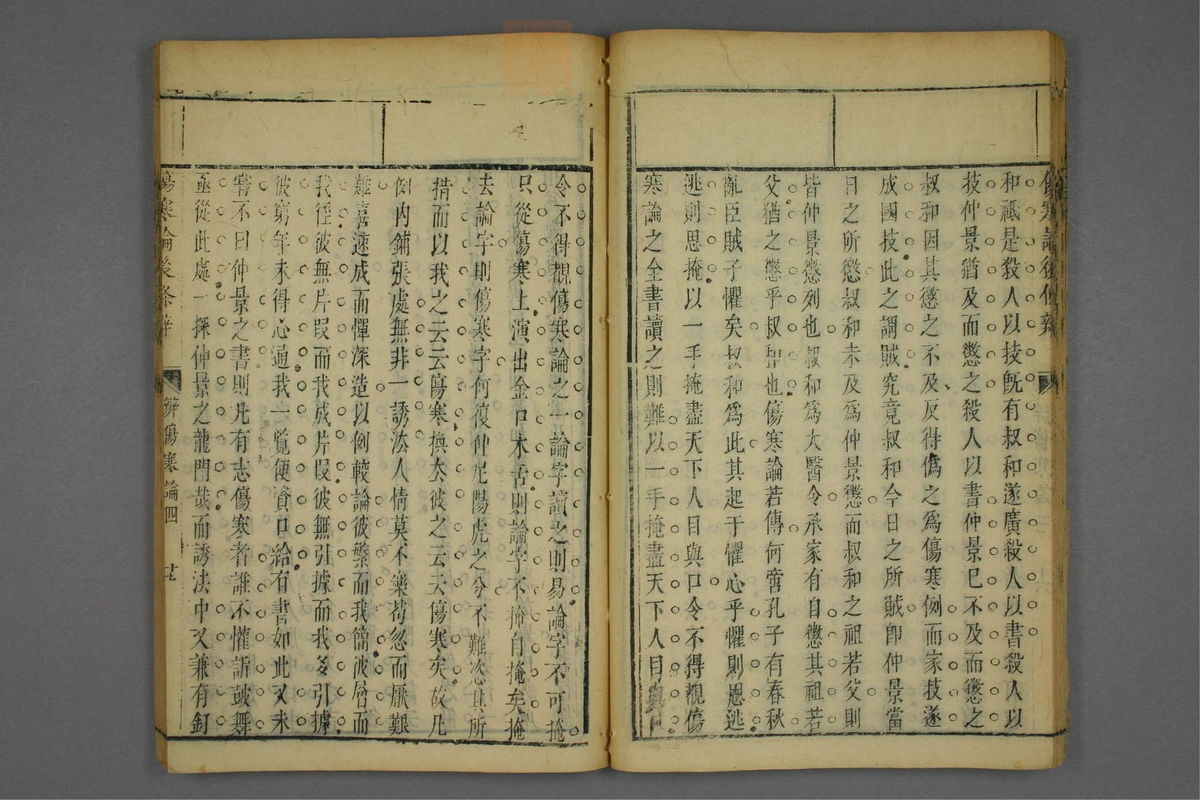 傷寒論後條辨
和祗是殺人以技旣有叔和遂廣殺人以書殺人以
技仲景猶及而懲之殺人以書仲景巳不及而懲之
叔和因其懲之不及反得僞之爲傷寒例而家技遂
成國技此之謂賊究竟叔和今日之所賊卽仲景當
日之所懲叔和未及爲仲景懲而叔和之祖若父則
皆仲景懲列也叔和爲大醫令承家有自懲其祖若
父猶之懲乎叔和也傷寒論若傳何啻孔子有春秋
亂臣賊子懼矣叔和爲此其起于懼心乎懼則思逃
逃則思掩以一手掩盡天下人目與口令不得覩傷
寒論之全書讀之則難以一手掩盡天下人目與口
令不得覩傷寒論之一論字讀之則易論字不可掩
只從傷寒上演出金口木舌則論字不掩自掩矣掩
去論字則傷寒字何復仲尼陽虎之分不難恣其所
措而以我之云云傷寒換次彼之云云傷寒矣故凡
例內鋪張處無非一誘法人情莫不樂苟忽而厭艱
難喜速成而憚深造以例較論彼繁而我簡彼層而
我徑彼無片段而我成片段彼無引據而我多引據
彼窮年未得心通我一覽便資口給有書如此又未
嘗不曰仲景之書則凡有志傷寒者誰不懽訢鼓舞
亟從此處一探仲景之龍門哉而誘法中又兼有釘
傷寒論後條辨 辨傷寒論四 廿